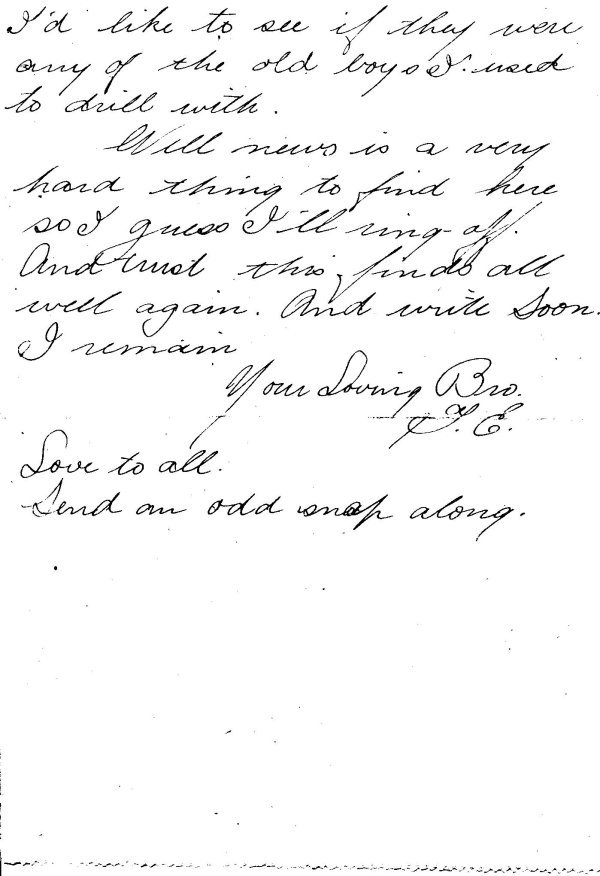 I'd like to see if they were
any of the old boys I used
to drill with.
Well news is a very
hard thing to find here
so I guess I'll ring-off.
And trust this finds all
well again. And write soon.
I remain
Your Loving Bro.
F. E.
Love to all.
Send an odd snap along.